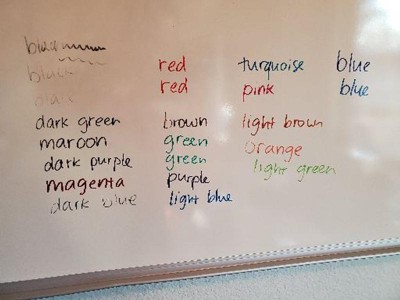 black
black red turquoise blue
red pink blue
dark green brown light brown
maroon green orange
dark purple green light green
magenta purple
dark blue light blue